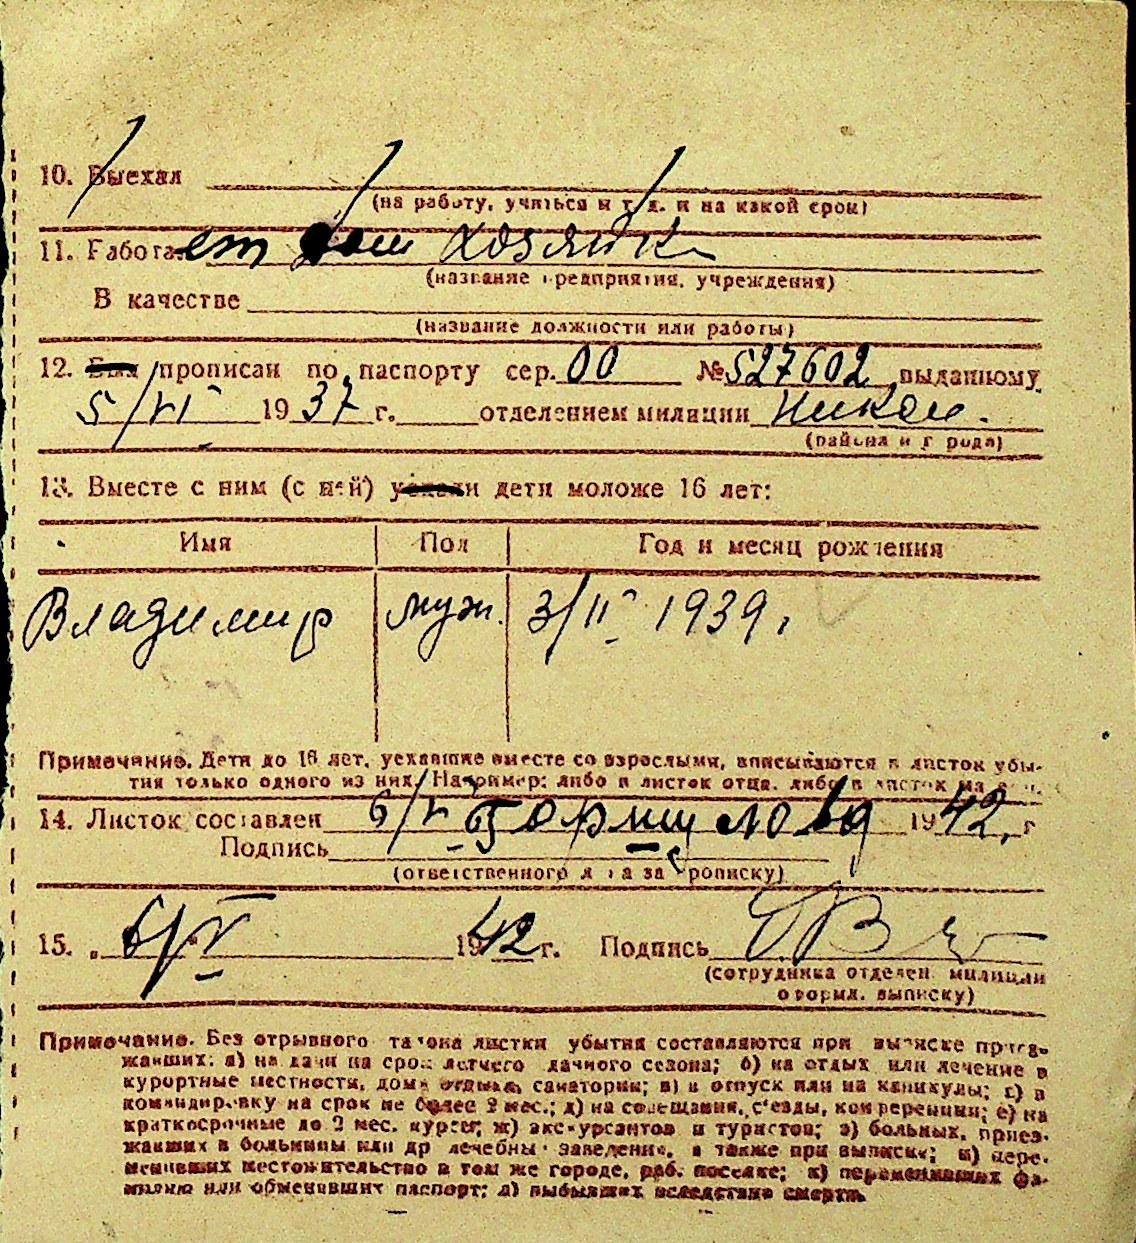 10. Выехал
(на работу, учиться и т. д. и на какой срок)
11. Работает дом хозяйка
(название предприятия, учреждения)
В качестве
(название должности или работы)
12. Был прописан по паспорту сер. 00 № 527602 выданному
5/VI 1937 г. отделением милиции Никол.
(района и города)
13. Вместе с ним (с ней) уехали дети моложе 16 лет:
Имя Пол Год и месяц рождения
Владимир муж. 3/II 1939 г.
Примечание. Дети до 16 лет, уехавшие вместе со взрослыми, вписываются в листок убы-
тия только одного из них. Например: либо в листок отца, либо в листок матери.
14. Листок составлен 6/V 1942 г
Подпись
(ответственного лица за прописку)
15. „ 6/V 1942 г. Подпись
(сотрудника отделен. милиции
оформл. выписку)
Примечание. Без отрывного талона листки убытия составляются при выписке приез-
жавших: а) на дачи на срок летнего дачного сезона; б) на отдых или лечение в
курортные местности, дома отдыха, санатории; в) в отпуск или на каникулы; г) в
командировку на срок не более 2 мес.; д) на совещания, с'езды, конференции; е) на
краткосрочные до 2 мес. курсы; ж) экскурсантов и туристов; з) больных, приез-
жавших в больницы или др лечебные заведения, а также при выписке; и) пере-
менивших местожительство в том же городе, раб. поселке; к) переменивших фа-
милию или обменивших паспорт; л) выбывших вследствие смерти.